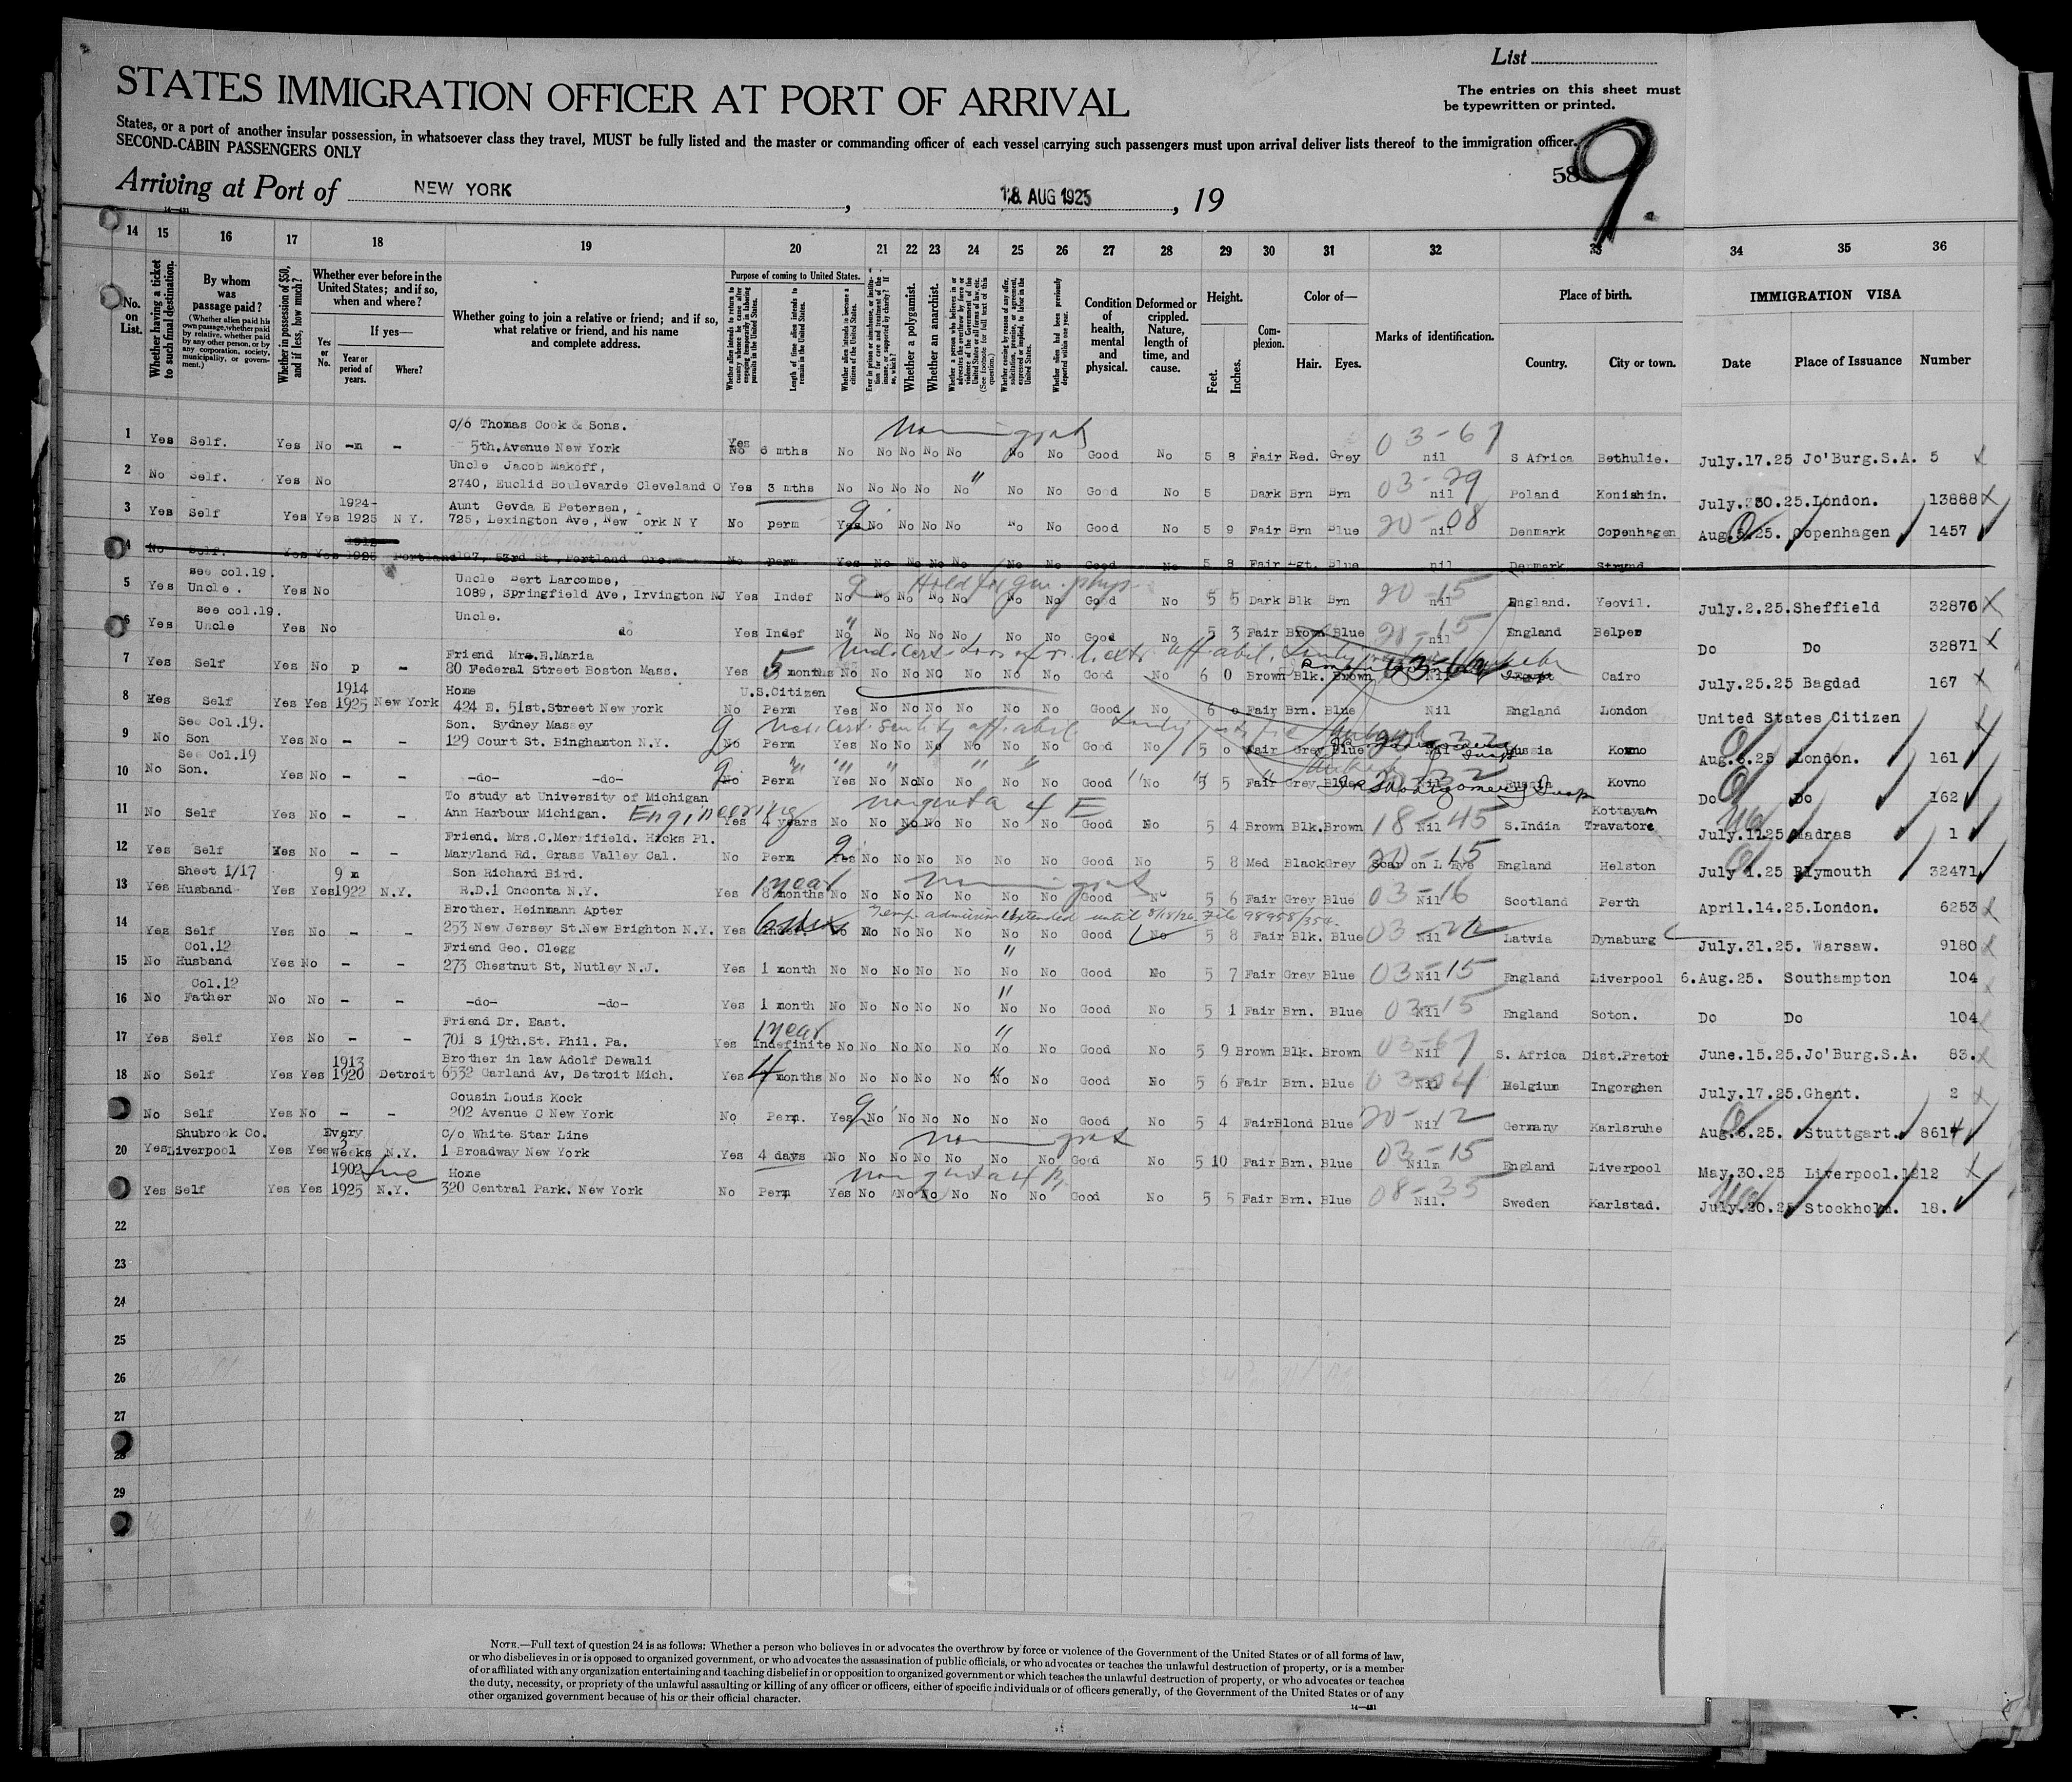 List
STATES IMMIGRATION OFFICER AT PORT OF ARRIVAL
The entries on this sheet must
be typewritten or printed.
States, or a port of another insular possession, in whatsoever class they travel, MUST be fully listed and the master or commanding officer of each vessel carrying such passengers must upon arrival deliver lists thereof to the immigration officer.
SECOND-CABIN PASSENGERS ONLY
58 9.
Arriving at Port of NEW YORK, 18 AUG 1925, 19
14 15 16 17 18 19 20 21 22 23 24 25 26 27 28 29 30 31 32 33 34 35 36
No. on List.
Whether having a ticket to such final destination.
By whom was passage paid?
(Whether alien paid his own passage, whether paid by relative, whether paid by any other person, or by any corporation, society, municipality, or government.)
Whether in possession of $50, and if less, how much?
Whether ever before in the United States; and if so, when and where?
Yes or No.
If yes—
Year or period of years.
Where?
Whether going to join a relative or friend; and if so, what relative or friend, and his name and complete address.
Purpose of coming to United States.
Whether alien intends to return to country whence he came after engaging temporarily in laboring pursuits in the United States.
Length of time alien intends to remain in the United States.
Whether alien intends to become a citizen of the United States.
Ever in prison or almshouse, or institution for care and treatment of the insane, or supported by charity? If so, which?
Whether a polygamist.
Whether an anarchist.
Whether a person who believes in or advocates the overthrow by force or violence of the Government of the United States or all forms of law, etc. (See footnote for full text of this question.)
Whether coming by reason of any offer, solicitation, promise, or agreement, expressed or implied, to labor in the United States.
Whether alien had been previously deported within one year.
Condition of health, mental and physical.
Deformed or crippled. Nature, length of time, and cause.
Height.
Feet. Inches.
Complexion.
Color of—
Hair. Eyes.
Marks of identification.
Place of birth.
Country. City or town.
IMMIGRATION VISA
Date Place of Issuance Number
C/o Thomas Cook & Sons. 03-67
1 Yes Self. Yes No - 5th.Avenue New York Yes No 6 mths No No No No No No No Good No 5 8 Fair Red. Grey nil S Africa Bethulie. July.17.25 Jo'Burg.S.A. 5
Uncle Jacob Makoff, 03-29
2 No Self. Yes No 2740, Euclid Boulevarde Cleveland O Yes 3 mths No No No No No No No Good No 5 Dark Brn Brn nil Poland Konishin. July.30.25.London. 13888
1924- Aunt Gevda E Petersen, 20-08
3 Yes Self Yes Yes 1925 N Y. 725, Lexington Ave, New ork N Y No perm Yes No No No No No No Good No 5 9 Fair Brn Blue nil Denmark Copenhagen Aug.5.25. Copenhagen 1457
4 No Self. Yes Yes Portland 197, 53rd St, Portland Ore No perm Yes No No No No No No Good No 5 8 Fair Lgt. Blue nil Denmark Strynd
see col.19. Uncle Bert Larcombe, Hold for
5 Yes Uncle. Yes No 1089, Springfield Ave, Irvington NJ Yes Indef No No No No No No No Good No 5 5 Dark Blk Brn 20-15 nil England. Yeovil. July.2.25.Sheffield 32870
see col.19. Uncle.
6 Yes Uncle Yes No do Yes Indef No No No No No No No Good No 5 3 Fair Brown Blue 20-15 nil England Belper Do Do 32871
Friend Mrs.E.Maria
7 Yes Self Yes No p - 80 Federal Street Boston Mass. Yes 5 months No No No No No No No Good No 6 0 Brown Blk. Brown Nil Egypt Cairo July.25.25 Bagdad 167
1914 Home U.S.Citizen
8 Yes Self Yes Yes 1925 New York 424 E. 51st.Street New york No Perm Yes No No No No No No Good No 6 0 Fair Brn. Blue Nil England London United States Citizen
See Col.19. Son. Sydney Massey
9 No Son Yes No - - 129 Court St. Binghamton N.Y. No Perm Yes No No No No No No Good No 5 0 Fair Grey Blue Nil Russia Kovno Aug.6.25 London. 161
See Col.19
10 No Son. Yes No - - -do- -do- No Perm Yes No No No No No No Good No 5 5 Fair Grey Blue Nil Russia Kovno Do Do 162
To study at University of Michigan
11 No Self Yes No - - Ann Harbour Michigan. Engineering Yes 4 years No No No No No No No Good No 5 4 Brown Blk.Brown 18-45 Nil S.India Kottayam Travatore July.17.25 Madras 1
Friend. Mrs.C.Merrifield. Hicks Pl.
12 Yes Self Yes No - - Maryland Rd. Grass Valley Cal. No Perm Yes No No No No No No Good No 5 8 Med Black Grey 20-15 Scar on L Eye England Helston July 1.25 Plymouth 32471
Sheet 1/17 9 m Son Richard Bird. 1 year
13 Yes Husband Yes Yes 1922 N.Y. R.D.1 Onconta N.Y. Yes 8 months No No No No No No No Good No 5 6 Fair Grey Blue 03-16 Nil Scotland Perth April.14.25.London. 6253
Brother. Heinmann Apter Temp. admission extended until 8/18/26 File 98958/354
14 Yes Self Yes No - - 253 New Jersey St.New Brighton N.Y. Yes No No No No No No No Good No 5 8 Fair Blk. Blue 03-22 Nil Latvia Dynaburg July.31.25. Warsaw. 9180
Col.12 Friend Geo. Clegg "
15 No Husband Yes No - - 273 Chestnut St, Nutley N.J. Yes 1 month No No No No No No No Good No 5 7 Fair Grey Blue 03-15 Nil England Liverpool 6.Aug.25. Southampton 104
Col.12 "
16 No Father No No - - -do- -do- Yes 1 month No No No No No No No Good No 5 1 Fair Brn. Blue 03-15 Nil England Soton. Do Do 104
Friend Dr. East. 1 year "
17 Yes Self Yes No - - 701 S 19th.St. Phil. Pa. Yes Indefinite No No No No No No No Good No 5 9 Brown Blk. Brown 03-67 Nil S. Africa Dist.Pretor June.15.25.Jo'Burg.S.A. 83.
1913 Brother in law Adolf Dewali
18 No Self Yes Yes 1920 Detroit 6532 Garland Av, Detroit Mich. Yes 4 months No No No No No No No Good No 5 6 Fair Brn. Blue 03-04 Nil Belgium Ingorghen July.17.25.Ghent. 2
Cousin Louis Kock
No Self Yes No - - 202 Avenue C New York No Perm. Yes No No No No No No Good No 5 4 Fair Blond Blue 20-12 Nil Germany Karlsruhe Aug.6.25. Stuttgart. 8614
Shubrook Co. Every 3 C/o White Star Line
20 Yes Liverpool Yes Yes weeks N.Y. 1 Broadway New York Yes 4 days No No No No No No No Good No 5 10 Fair Brn. Blue 03-15 Nil England Liverpool May.30.25 Liverpool.1212
1902 Home
Yes Self Yes Yes 1925 N.Y. 320 Central Park. New York No Perm Yes No No No No No No Good No 5 5 Fair Brn. Blue 08-35 Nil. Sweden Karlstad. July.20.25 Stockholm. 18.
22
23
24
25
26
27
28
29
NOTE.—Full text of question 24 is as follows: Whether a person who believes in or advocates the overthrow by force or violence of the Government of the United States or of all forms of law,
or who disbelieves in or is opposed to organized government, or who advocates the assassination of public officials, or who advocates or teaches the unlawful destruction of property, or is a member
of or affiliated with any organization entertaining and teaching disbelief in or opposition to organized government or which teaches the unlawful destruction of property, or who advocates or teaches
the duty, necessity, or propriety of the unlawful assaulting or killing of any officer or officers, either of specific individuals or of officers generally, of the Government of the United States or of any
other organized government because of his or their official character.
14—431